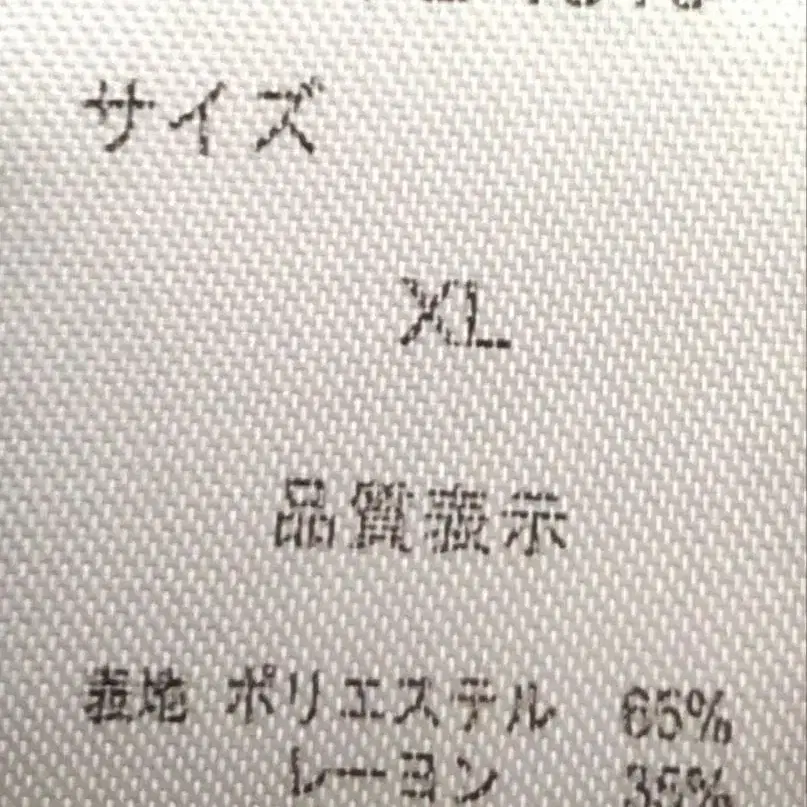 サイズ
XL
品質表示
表地 ポリエステル 65%
レーヨン 35%